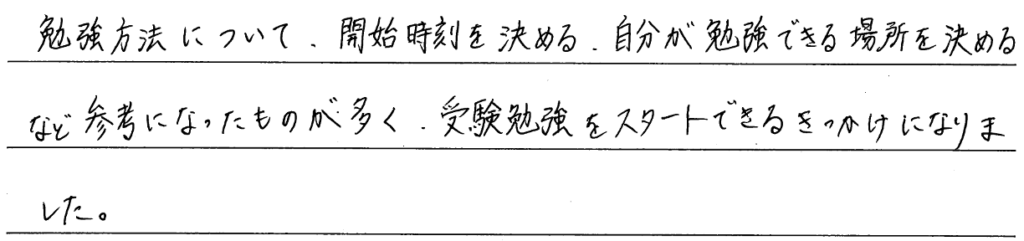 勉強方法について、開始時刻を決める、自分が勉強できる場所を決める
など参考になったものが多く、受験勉強をスタートできるきっかけになりま
した。